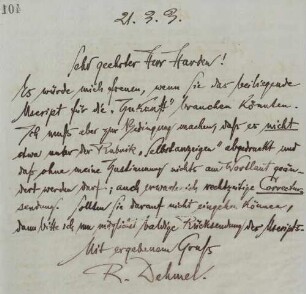 101
21. 3. 9.
Sehr geehrter Herr Harden!
Es würde mich freuen, wenn Sie das beiliegende
Mscript für die „Zukunft“ brauchen könnten.
Ich muß aber zur Bedingung machen, daß es nicht
etwa unter der Rubrik „Selbstanzeigen“ abgedruckt und
daß ohne meine Zustimmung nichts am Wortlaut geän-
dert werden darf; auch erwarte ich rechtzeitige Correctur-
sendung. Sollten Sie darauf nicht eingehen können,
dann bitte ich um möglichst baldige Rücksendung des Mscripts.
Mit ergebenem Gruß
R. Dehmel.